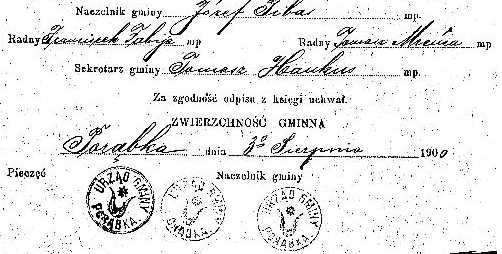 Naczelnik gminy Józef Gibas mp.
Radny Franciszek Fabija mp Radny Tomasz Mreńca mp
Sekretarz gminy Tomasz Haukus mp.
Za zgodność odpisu z księgi uchwał.
ZWIERZCHNOŚĆ GMINNA
Porąbka dnia 3go Sierpnia 1900
Pieczęć Naczelnik gminy
URZĄD GMINY PORĄBKA
URZĄD GMINY PORĄBKA
URZĄD GMINY PORĄBKA